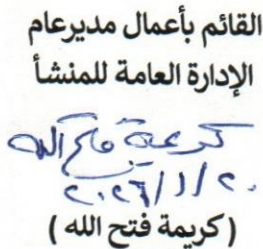 القائم بأعمال مديرعام
الإدارة العامة للمنشأ
كريمة فتح الله
٢٠٢٦/١/٢٠
(كريمة فتح الله)